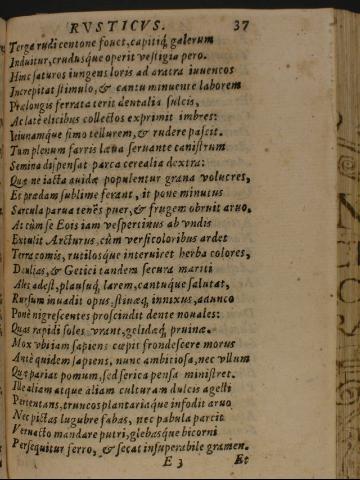 RVSTICVS. 37
Terga rudi centone fouet, capitiq; galerum
Induitur, crudusque operit vestigia pero.
Hinc saturos iungens loris ad aratra iuuencos
Increpitat stimulo, & cantu minuente laborem
Prælongis ferrata terit dentalia sulcis,
Ac latè elicibus collectos exprimit imbres:
Ieiunamque fimo tellurem, & rudere pascit.
Tum plenum farris læua seruante canistrum
Semina dispensat parca cerealia dextra:
Quæ ne iacta auidæ populentur grana volucres,
Et prædam sublime ferant, it pone minutus
Sarcula parua tenẽs puer, & frugem obruit aruo.
At cùm se Eois iam vespertinus ab vndis
Extulit Arcturus, cùm versicoloribus ardet
Terra comis, rutilosque interuiret herba colores,
Dædalias, & Getici tandem secura mariti
Ales adest, plausuq; larem, cantuque salutat,
Rursum inuadit opus, stiuæq; innixus, adunco
Ponè nigrescentes proscindit dente nouales:
Quas rapidi soles vrant, gelidæq; pruinæ.
Mox vbi iam sapiens cœpit frondescere morus
Antè quidem sapiens, nunc ambitiosa, nec vllum
Quæ pariat pomum, sed serica pensa ministret.
Ille aliam atque aliam culturam dulcis agelli
Pertentans, truncos plantariaque infodit aruo
Nec pictas lugubre fabas, nec pabula parcit
Veruacto mandare putri, glebasque bicorni
Persequitur ferro, & secat insuperabile gramen.
E 3 Et